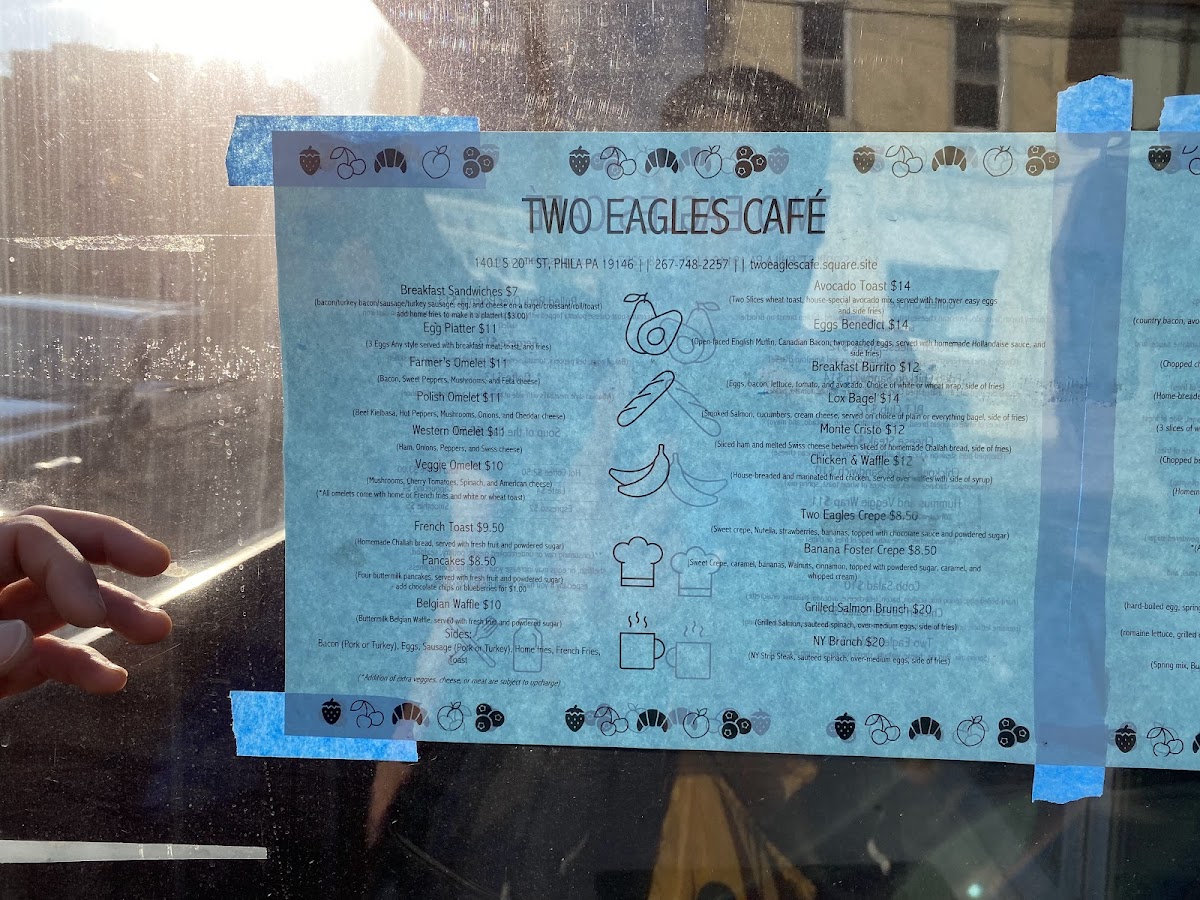 TWO EAGLES CAFÉ
1401 S 20TH ST, PHILA PA 19146 || 267-748-2257 || twoeaglescafe.square.site
Breakfast Sandwiches $7
(bacon/turkey bacon/sausage/turkey sausage, egg, and cheese on a bagel/croissant/roll/toast)
add home fries to make it a platter! ($3.00)
Egg Platter $11
(3 Eggs Any style served with breakfast meat, toast, and fries)
Farmer's Omelet $11
(Bacon, Sweet Peppers, Mushrooms, and Feta cheese)
Polish Omelet $11
(Beef Kielbasa, Hot Peppers, Mushrooms, Onions, and Cheddar cheese)
Western Omelet
(Ham, Onions, Peppers, and Swiss cheese)
Veggie Omelet $10
(Mushrooms, Cherry Tomatoes, Spinach, and American cheese)
(*All omelets come with home or French fries and white or wheat toast)
French Toast $9.50
(Homemade Challah bread, served with fresh fruit and powdered sugar)
Pancakes $8.50
(Four buttermilk pancakes, served with fresh fruit and powdered sugar)
add chocolate chips or blueberries for $1.00
Belgian Waffle $10
(Buttermilk Belgian Waffle, served with fresh fruit and powdered sugar)
Sides:
Bacon (Pork or Turkey), Eggs, Sausage (Pork or Turkey), Home fries, French Fries,
Toast
(*Addition of extra veggies, cheese, or meat are subject to upcharge)
Avocado Toast $14
(Two Slices wheat toast, house-special avocado mix, served with two over easy eggs
and side fries)
Eggs Benedict $14
(Open-faced English Muffin, Canadian Bacon, two poached eggs, served with homemade Hollandaise sauce, and
side fries)
Breakfast Burrito $12
(Eggs, bacon, lettuce, tomato, and avocado. Choice of white or wheat wrap, side of fries)
Lox Bagel $14
(Smoked Salmon, cucumbers, cream cheese, served on choice of plain or everything bagel, side of fries)
Monte Cristo $12
(Sliced ham and melted Swiss cheese between sliced of homemade Challah bread, side of fries)
Chicken & Waffle $12
(House-breaded and marinated fried chicken, served over waffles with side of syrup)
Two Eagles Crepe $8.50
(Sweet crepe, Nutella, strawberries, bananas, topped with chocolate sauce and powdered sugar)
Banana Foster Crepe $8.50
Sweet Crepe, caramel, bananas, Walnuts, cinnamon, topped with powdered sugar, caramel, and
whipped cream)
Grilled Salmon Brunch $20
(Grilled Salmon, sauteed spinach, over-medium eggs, side of fries)
NY Brunch $20
(NY Strip Steak, sauteed spinach, over-medium eggs, side of fries)
(country bacon, avo
(Chopped ch
(Home-breade
(3 slices of w
(Chopped be
(Homem
(hard-boiled egg, spring
(romaine lettuce, grilled
(Spring mix, Bu